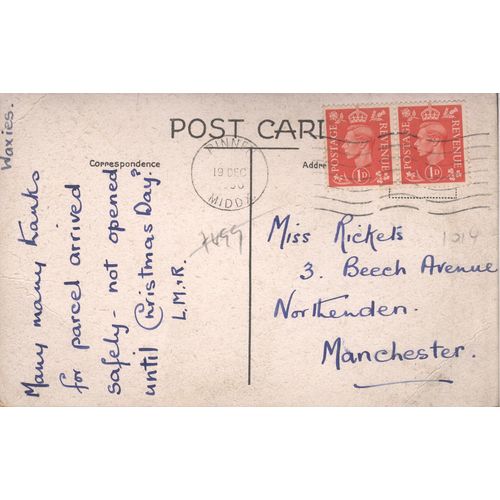 Waxies.
POST CARD
Correspondence
Addre
PINNER
19 DEC
MIDDX.
POSTAGE
REVENUE
1D
POSTAGE
REVENUE
1D
Many many thanks
for parcel arrived
safely - not opened
until Christmas Day?
L.M.R.
Miss Rickets
3. Beech Avenue
Northenden.
Manchester.